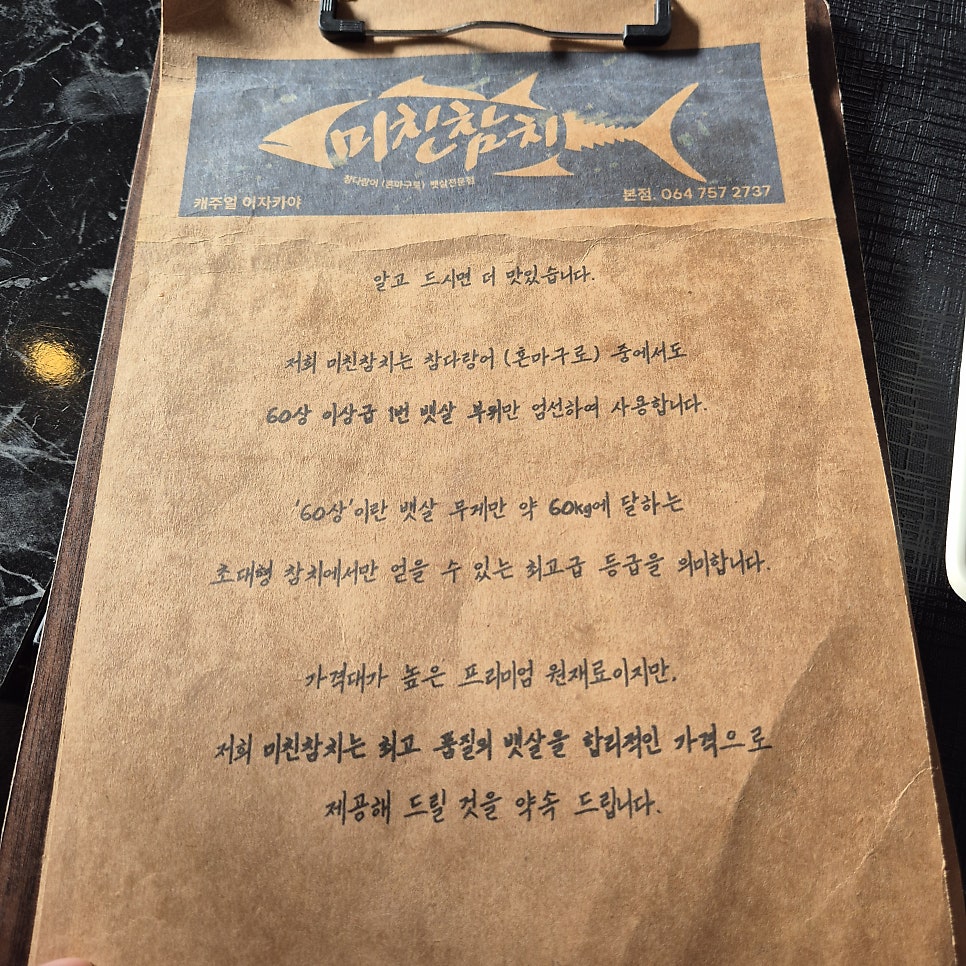 미친참치
참다랑어 (혼마구로) 뱃살전문점
캐주얼 이자카야
본점. 064 757 2737
알고 드시면 더 맛있습니다.
저희 미친참치는 참다랑어 (혼마구로) 중에서도
60상 이상급 1번 뱃살 부위만 엄선하여 사용합니다.
'60상'이란 뱃살 무게만 약 60kg에 달하는
초대형 참치에서만 얻을 수 있는 최고급 등급을 의미합니다.
가격대가 높은 프리미엄 원재료이지만,
저희 미친참치는 최고 품질의 뱃살을 합리적인 가격으로
제공해 드릴 것을 약속 드립니다.